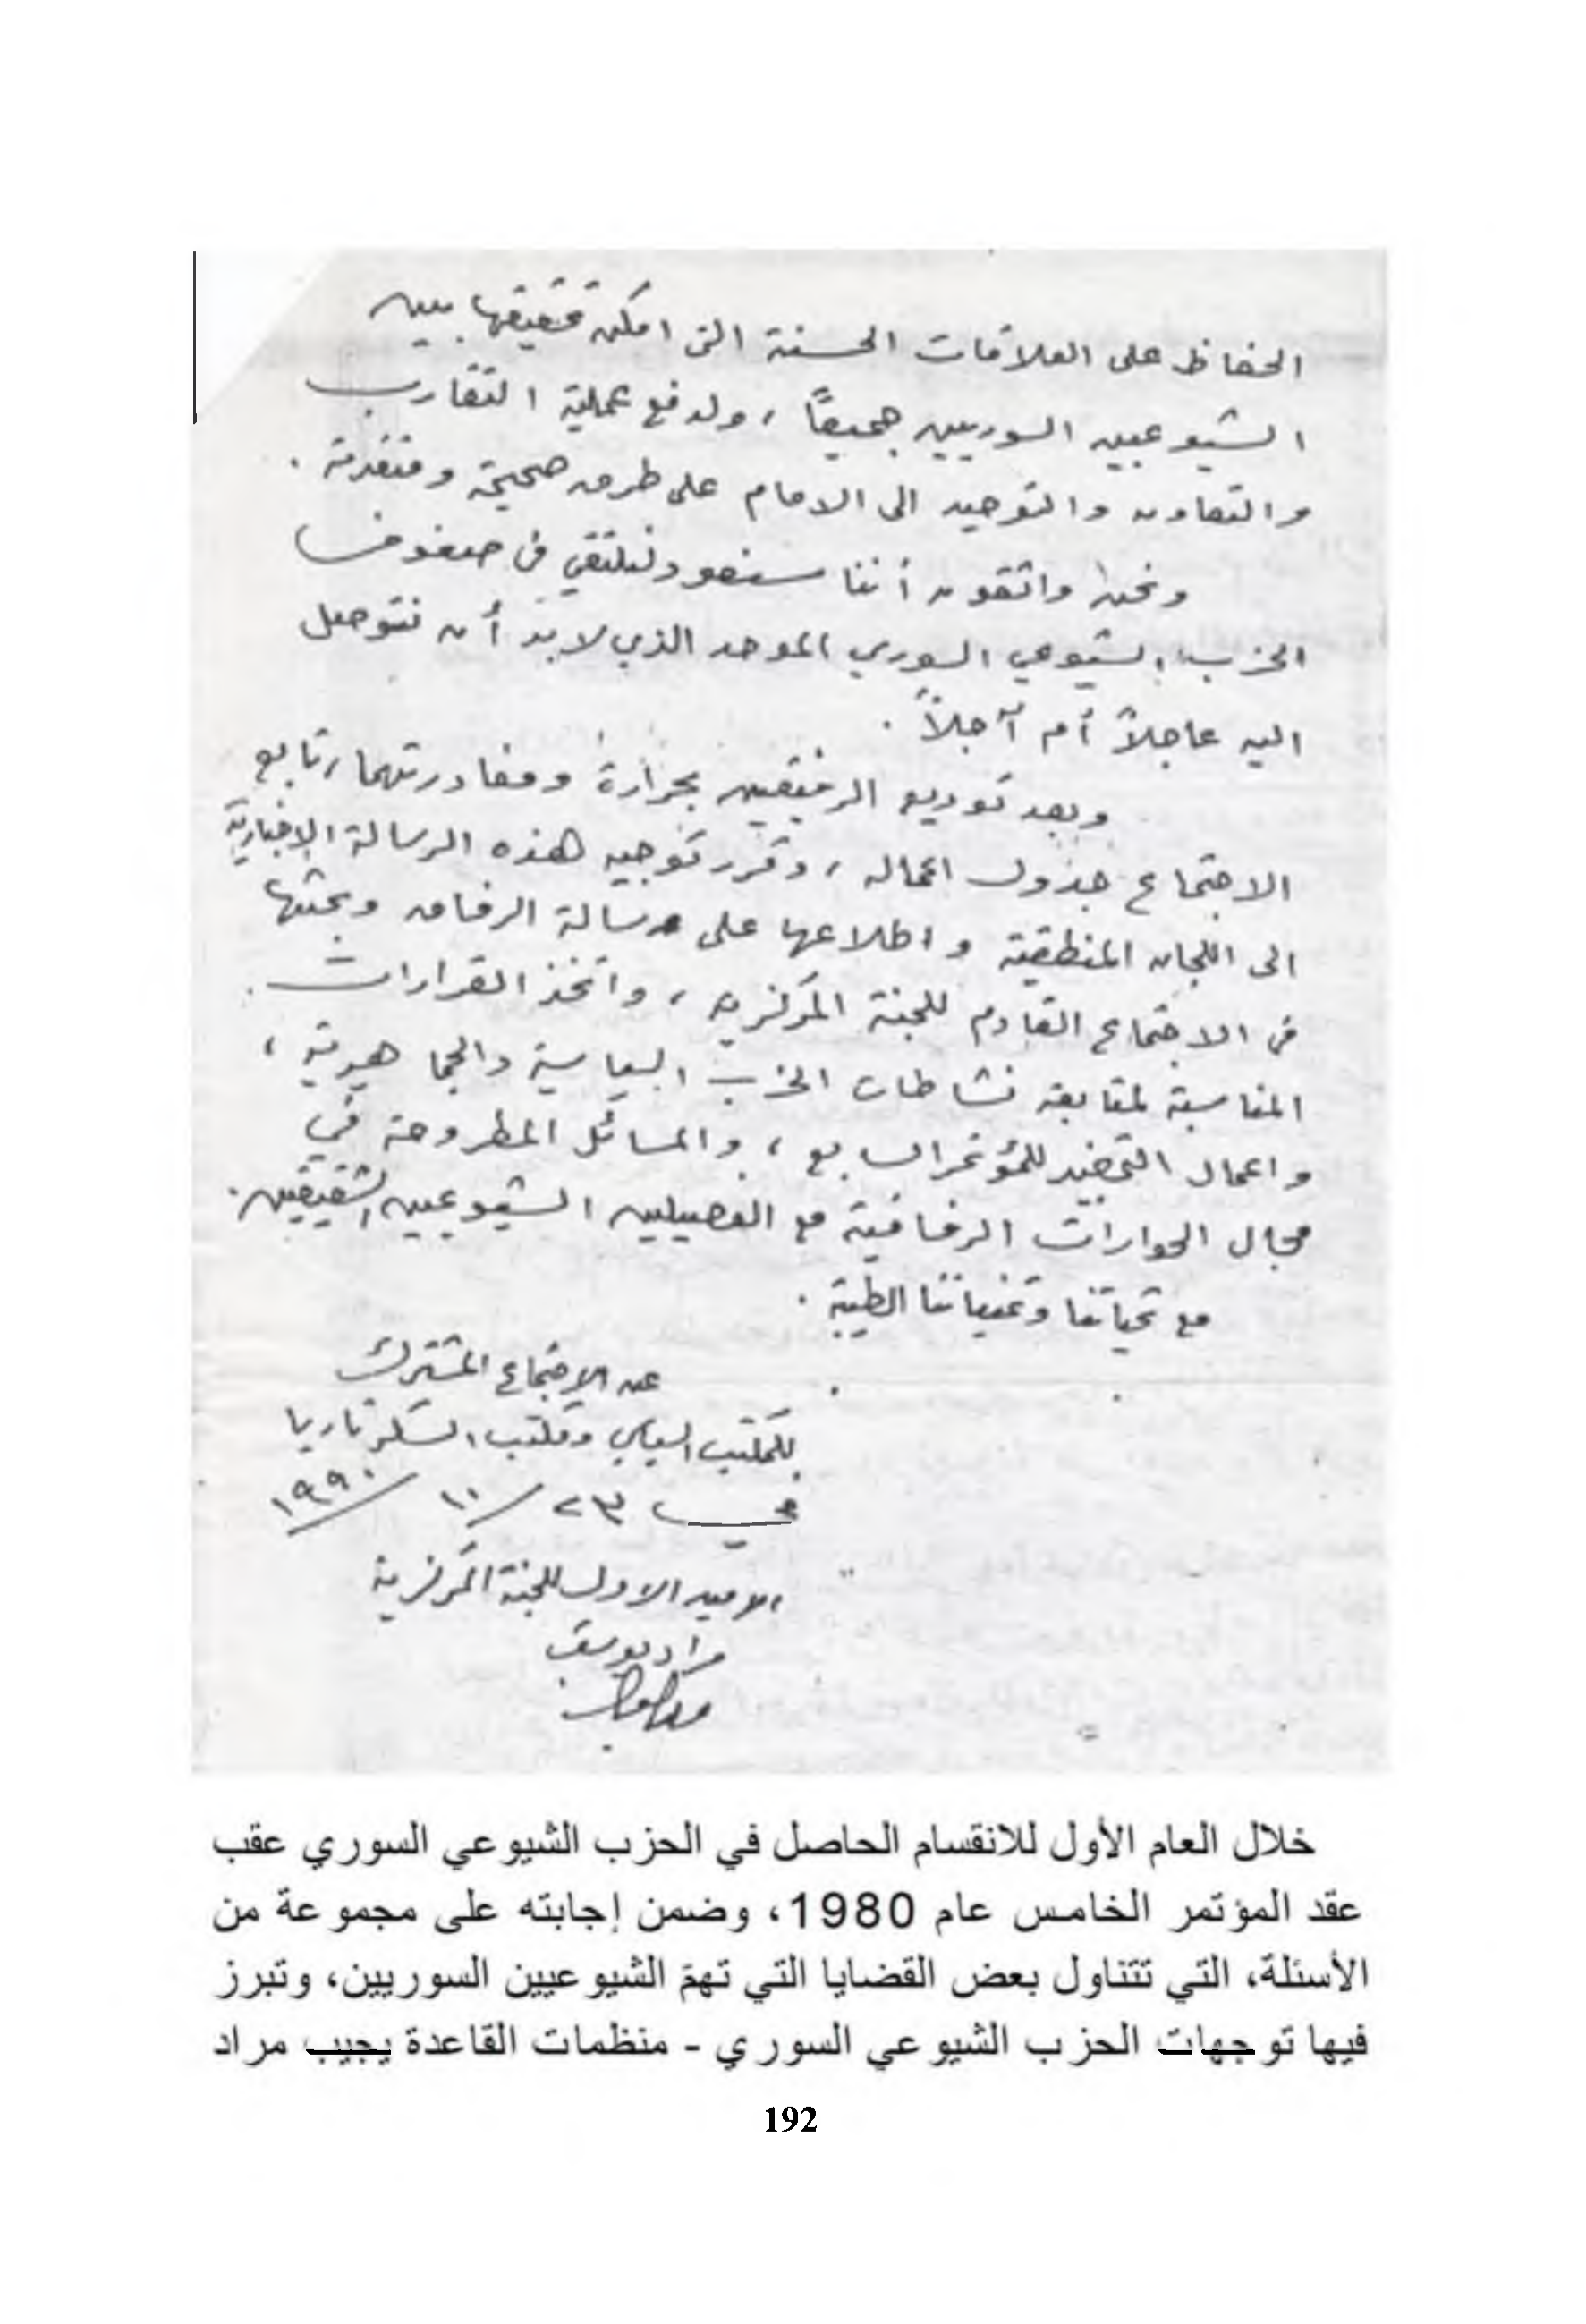 الحفاظ على العلاقات الحسنة التي امكن تحقيقها بين
الشيوعيين السوريين جميعًا، ولدفع عملية التقارب
والتعاون والتوحيد الى الامام على طرق صحيحة ومتقدمة.
ونحن واثقون أننا سنعود لنلتقي في صفوف
الحزب الشيوعي السوري الموحد الذي لا بد أن نتوصل
اليه عاجلاً أم آجلاً.
وبعد توديع الرفيقين بحرارة ومغادرتهما، تابع
الاجتماع جدول اعماله، وقرر توجيه هذه الرسالة الإخبارية
الى اللجان المنطقية واطلاعها على رسالة الرفاق وبحثها
في الاجتماع القادم للجنة المركزية، واتخذ القرارات
المناسبة لمتابعة نشاطات الحزب السياسية والجماهيرية،
واعمال التحضير للمؤتمر السابع، والمسائل المطروحة في
مجال الحوارات الرفاقية مع الفصيلين الشيوعيين الشقيقين.
مع تحياتنا وتمنياتنا الطيبة.
عن الاجتماع المشترك
للمكتب السياسي ومكتب السكرتاريا
في ٢٣/١٠/١٩٩٠
الامين الاول للجنة المركزية
مراد يوسف
خلال العام الأول للانقسام الحاصل في الحزب الشيوعي السوري عقب
عقد المؤتمر الخامس عام 1980، وضمن إجابته على مجموعة من
الأسئلة، التي تتناول بعض القضايا التي تهمّ الشيوعيين السوريين، وتبرز
فيها توجهات الحزب الشيوعي السوري - منظمات القاعدة يجيب مراد
192